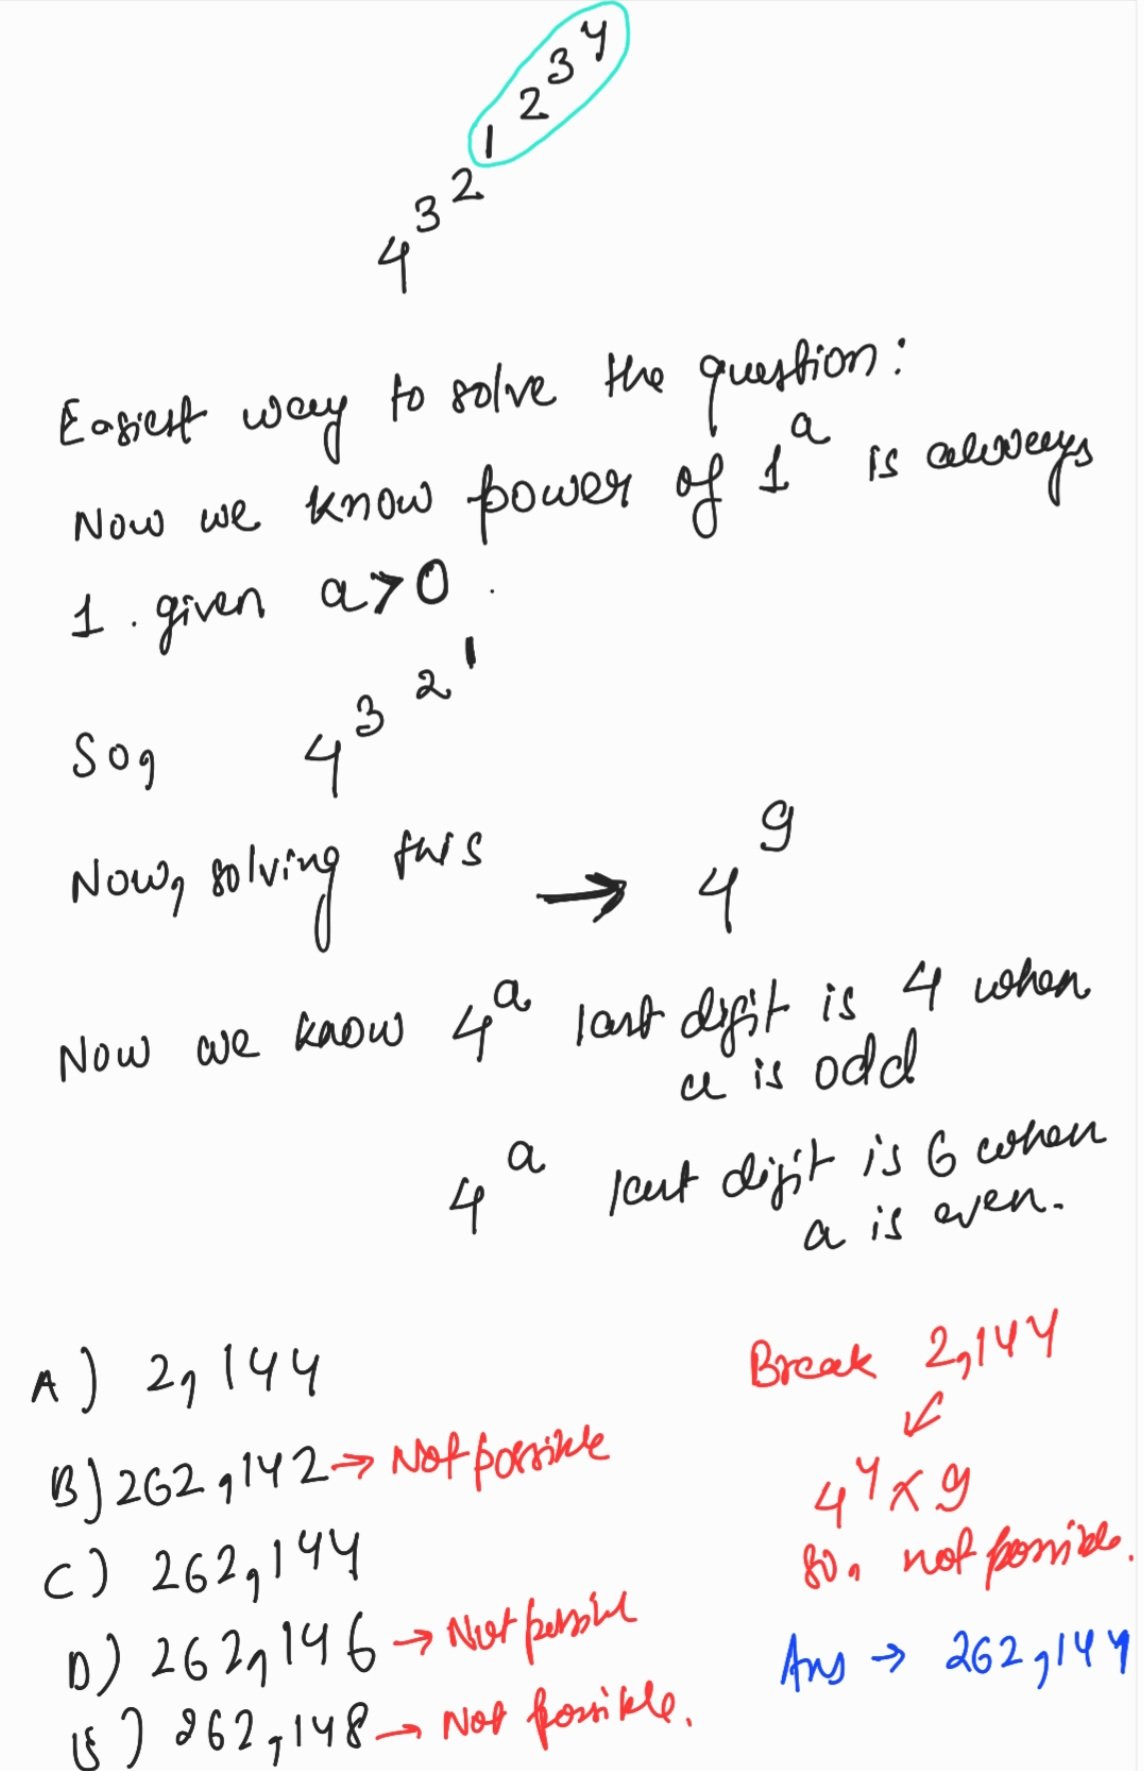 4^3^2^1^2^3^4
Easiest way to solve the question:
Now we know power of 1^a is always
1. given a>0.
So, 4^3^2^1
Now, solving this → 4^9
Now we know 4^a last digit is 4 when
a is odd
4^a last digit is 6 when
a is even.
A) 2,144
B) 262,142 → Not possible
C) 262,144
D) 262,146 → Not possible
E) 262,148 → Not possible.
Break 2,144
4^4 x 9
So, not possible.
Ans → 262,144